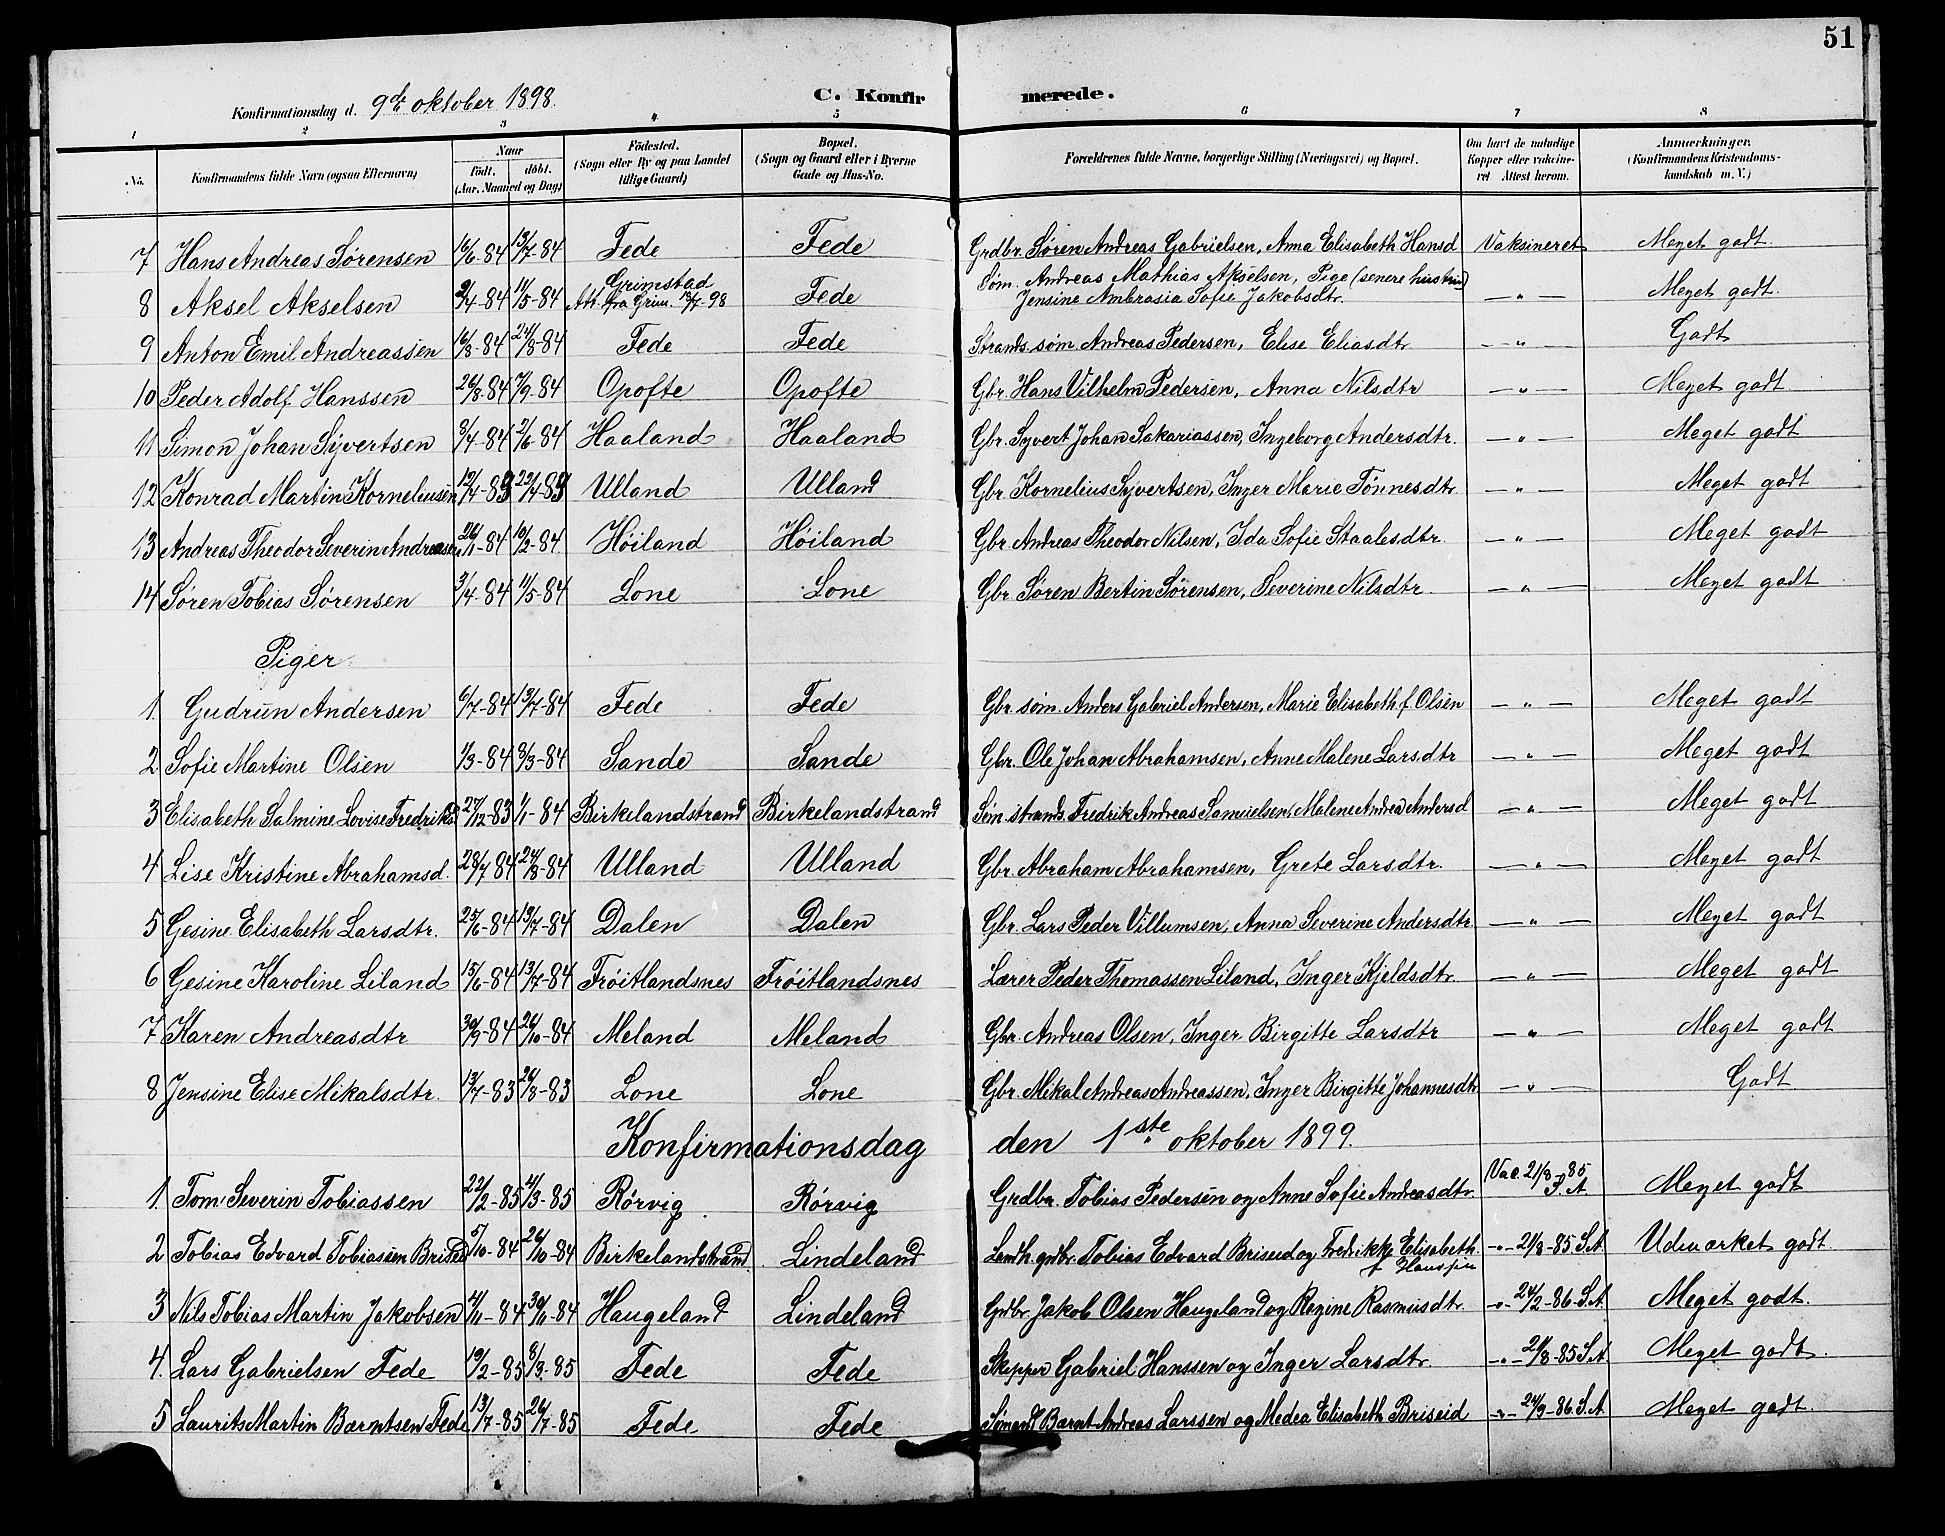 51
Konfirmationsdag d. 9de oktober 1898. C. Konfirmerede.
1 2 3 4 5 6 7 8
No. Konfirmandens fulde Navn (ogsaa Efternavn) Naar födt. döbt. (Aar, Maaned og Dag) Födested. (Sogn eller By og paa Landet tillige Gaard) Bopæl. (Sogn og Gaard eller i Byerne Gade og Hus-No. Forældrenes fulde Navne, borgerlige Stilling (Næringsvei) og Bopæl. Om havt de naturlige Kopper eller vaccineret Attest herom. Anmærkninger. (Konfirmandens Kristendomskundskab m. V.)
7 Hans Andreas Sørensen 16/6-84 13/7-84 Fede Fede Grdbr. Søren Andreas Gabrielsen, Anna Elisabeth Hansd Vaksineret Meget godt.
8 Aksel Akselsen 84 11/5-84 Grimstad Att. fra Grim. 98 Fede Søm. Andreas Mathias Akselsen, Pige (senere hustru) Jensine Ambrosia Sofie Jakobsdtr. — " — Meget godt.
9 Anton Emil Andreassen 16/8-84 24/8-84 Fede Fede Strands. søm. Andreas Pedersen, Elise Eliasdtr — " — Godt
10 Peder Adolf Hanssen 26/8-84 7/9-84 Opofte Opofte Gbr. Hans Vilhelm Pedersen, Anna Nilsdtr — " — Meget godt
11 Simon Johan Syvertsen 3/4-84 2/6-84 Haaland Haaland Gbr. Syvert Johan Sakariassen, Ingeborg Andersdtr. — " — Meget godt
12 Konrad Martin Korneliusen Ulland Ulland Gbr. Kornelius Syvertsen, Inger Marie Tönnesdtr — " — Meget godt
13 Andreas Theodor Severin Andreasen 26/1-84 10/2-84 Höiland Höiland Gbr. Andreas Theodor Nilsen, Ida Sofie Staalesdtr. — " — Meget godt
14 Søren Tobias Sørensen 3/4-84 11/5-84 Lone Lone Gbr. Søren Bertin Sørensen, Severine Nilsdtr. — " — Meget godt
Piger
1. Gudrun Andersen 6/7-84 13/7-84 Fede Fede Gbr. søm. Anders Gabriel Andersen, Marie Elisabeth f. Olsen — " — Meget godt
2 Sofie Martine Olsen 1/3-84 8/3-84 Sande Sande Gbr. Ole Johan Abrahamsen, Anne Malene Larsdtr — " — Meget godt
3 Elisabeth Salmine Lovise Fredriksd 27/12-83 1/1-84 Birkelandstrand Birkelandstrand Søm. strands. Fredrik Andreas Samuelsen, Malene Andrea Andersd — " — Meget godt
4 Lise Kristine Abrahamsd. 28/7 84 24/8-84 Ulland Ulland Gbr. Abraham Abrahamsen, Grete Larsdtr. — " — Meget godt
5 Gesine Elisabeth Larsdtr. 25/6-84 13/7-84 Dalen Dalen Gbr. Lars Peder Villumsen, Anna Severine Andersdtr. — " — Meget godt
6 Gesine Karoline Liland 15/6-84 13/7-84 Fröitlandsnes Fröitlandsnes Lærer Peder Thomassen Liland, Inger Kjeldsdtr. — " — Meget godt
7 Karen Andreasdtr 30/9-84 26/10-84 Meland Meland Gbr. Andreas Olsen, Inger Birgitte Larsdtr — " — Meget godt
8 Jensine Elise Mikalsdtr. 13/7-83 26/8-83 Lone Lone Gbr. Mikal Andreas Andreassen, Inger Birgitte Johannesdtr — " — Godt
Konfirmationsdag den 1ste oktober 1899.
1. Tom Severin Tobiassen 22/2-85 85 Rörvig Rörvig Grdbr. Tobias Pedersen og Anne Sofie Andreasdtr. Vac. 21/8-85 S.A Meget godt
2 Tobias Edvard Tobiassen Briseid 5/10-84 26/10-84 Birkelandstrand Lindeland grdbr. Tobias Edvard Briseid og Fredrikke Elisabeth f Hanssen -"- 21/8-85 S.A Udmærket godt
3 Nils Tobias Martin Jakobsen 4/11-84 30/11-84 Haugeland Lindeland Grdbr. Jakob Olsen Haugeland og Regine Rasmusdtr. -"- 24/2-86 S.A Meget godt.
4. Lars Gabrielsen Fede 19/2-85 8/3-85 Fede Fede Skipper Gabriel Hanssen og Inger Larsdtr. -"- 21/8-85 S.A Meget godt.
5 Laurits Martin Bærntsen Fede 13/7-85 26/7-85 Fede Fede Sømand Bærnt Andreas Larssen og Medea Elisabeth Briseid -"- 24/9-86. S.A Meget godt.